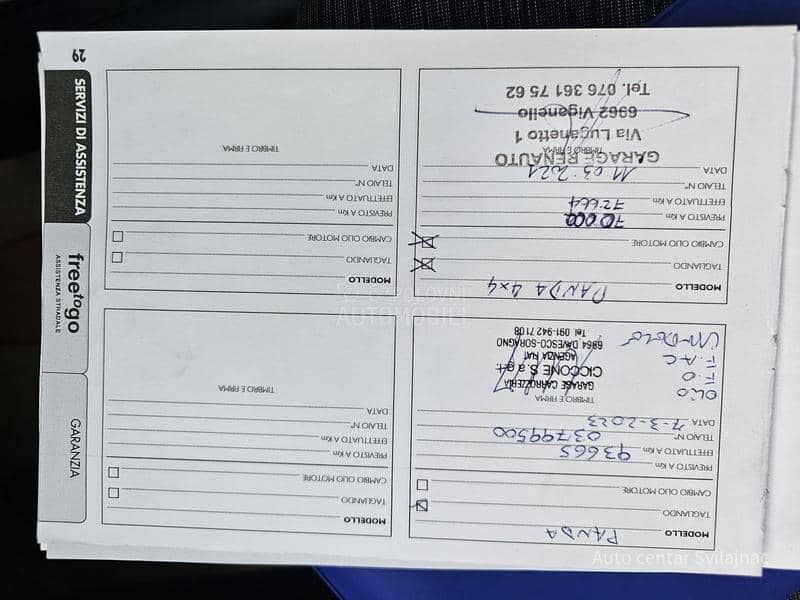 MODELLO PANDA
TAGLIANDO
CAMBIO OLIO MOTORE
PREVISTO A Km
EFFETTUATO A Km 93665
TELAIO N° 03799500
DATA 7-3-2023
TIMBRO E FIRMA
OLIO
F.O
F.AC
GARAGE CARROZZERIA
CICCONE S.a.g.l.
AGENZIA FIAT
6964 DAVESCO-SORAGNO
Tel. 091-942 71 08
MODELLO
TAGLIANDO
CAMBIO OLIO MOTORE
PREVISTO A Km
EFFETTUATO A Km
TELAIO N°
DATA
TIMBRO E FIRMA
MODELLO PANDA 4x4
TAGLIANDO
CAMBIO OLIO MOTORE
PREVISTO A Km 70000
EFFETTUATO A Km 72664
TELAIO N°
DATA 11 03 2021
TIMBRO E FIRMA
GARAGE RENAUTO
Via Luganetto 1
6962 Viganello
Tel. 076 361 75 62
MODELLO
TAGLIANDO
CAMBIO OLIO MOTORE
PREVISTO A Km
EFFETTUATO A Km
TELAIO N°
DATA
TIMBRO E FIRMA
29
SERVIZI DI ASSISTENZA
freetogo
ASSISTENZA STRADALE
GARANZIA
POLOVNI
AUTOMOBILI
Auto centar Svilajnac